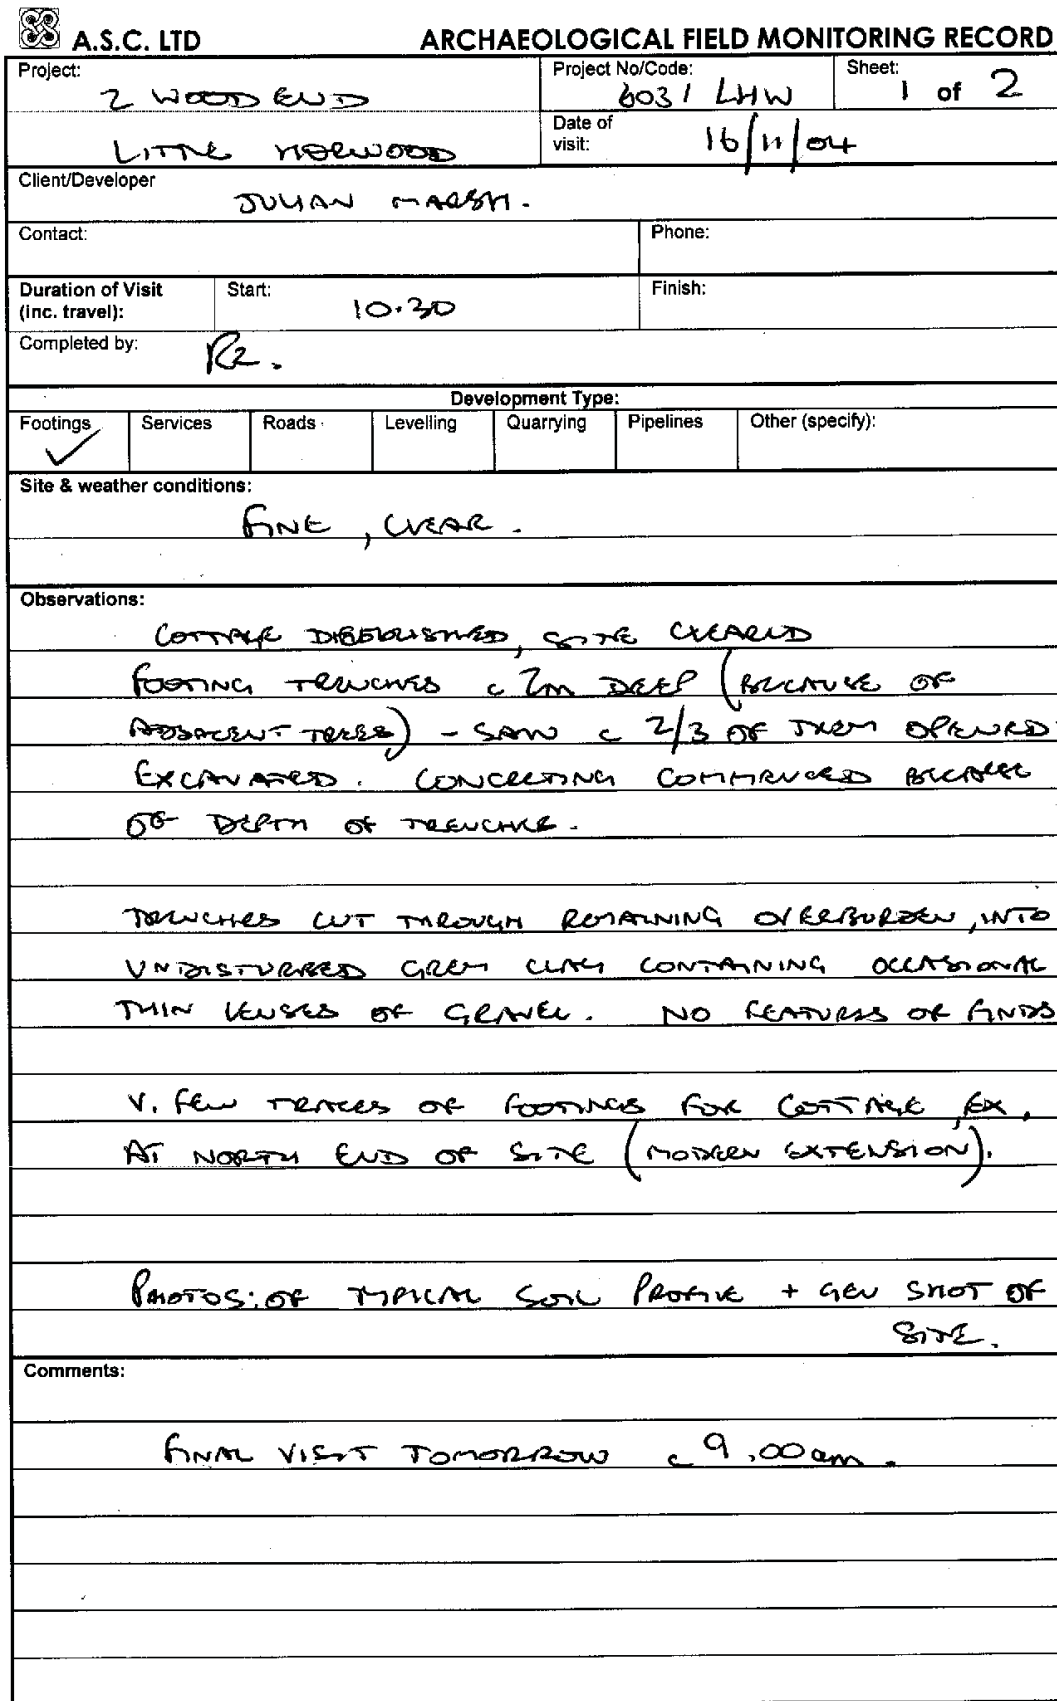 A.S.C. LTD ARCHAEOLOGICAL FIELD MONITORING RECORD
Project: Project No/Code: Sheet:
2 WOOD END 603/ LHW 1 of 2
Date of visit: 16/11/04
LITTLE HORWOOD
Client/Developer
JULIAN MARSH.
Contact: Phone:
Duration of Visit (inc. travel): Start: 10.30 Finish:
Completed by:
Development Type:
Footings ✓ Services Roads Levelling Quarrying Pipelines Other (specify):
Site & weather conditions:
FINE, CLEAR.
Observations:
COTTAGE DEMOLISHED, SITE CLEARED
FOOTING TRENCHES c 2m DEEP (BECAUSE OF
ADJACENT TREES) - SAW c 2/3 OF THEM OPENED
EXCAVATED. CONCRETING COMMENCED BECAUSE
OF DEPTH OF TRENCHES.
TRENCHES CUT THROUGH REMAINING OVERBURDEN, INTO
UNDISTURBED GREY CLAY CONTAINING OCCASIONAL
THIN LENSES OF GRAVEL. NO FEATURES OR FINDS
V. FEW TRACES OF FOOTINGS FOR COTTAGE, EX.
AT NORTH END OF SITE (MODERN EXTENSION).
PHOTOS: OF TYPICAL SOIL PROFILE + GEN SHOT OF
SITE.
Comments:
FINAL VISIT TOMORROW c 9.00am.